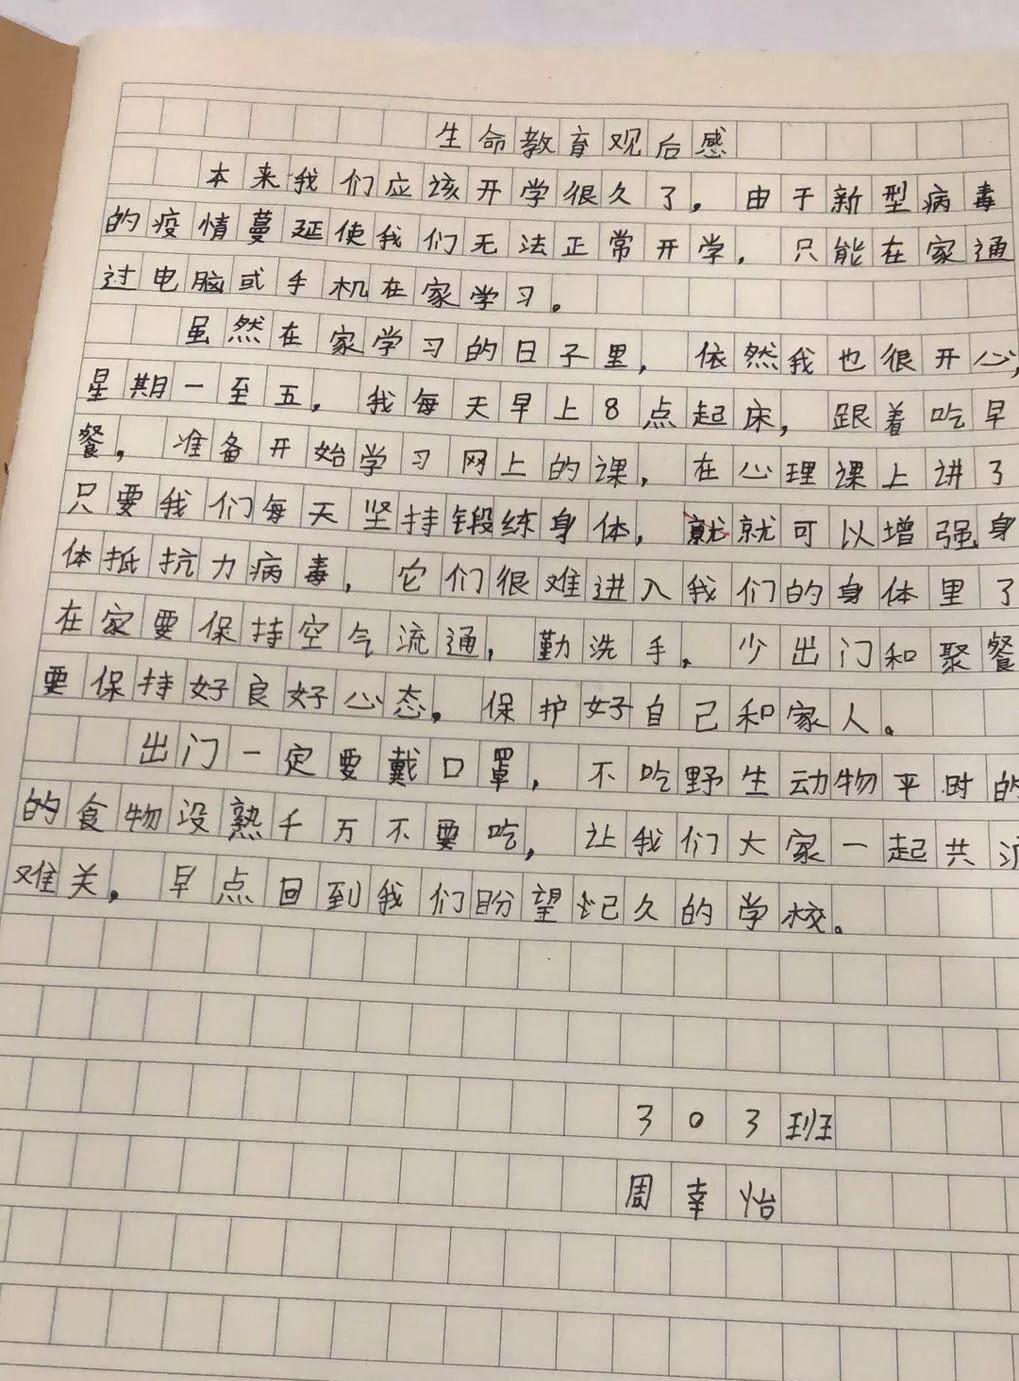 生命教育观后感
本来我们应该开学很久了，由于新型病毒
的疫情蔓延使我们无法正常开学，只能在家通
过电脑或手机在家学习。
虽然在家学习的日子里，依然我也很开心，
星期一至五，我每天早上8点起床，跟着吃早
餐，准备开始学习网上的课，在心理课上讲了
只要我们每天坚持锻练身体，就可以增强身
体抵抗力病毒，它们很难进入我们的身体里了
在家要保持空气流通，勤洗手，少出门和聚餐
要保持好良好心态。保护好自己和家人。
出门一定要戴口罩，不吃野生动物平时的
的食物没熟千万不要吃，让我们大家一起共
难关，早点回到我们盼望久的学校。
303班
周幸怡